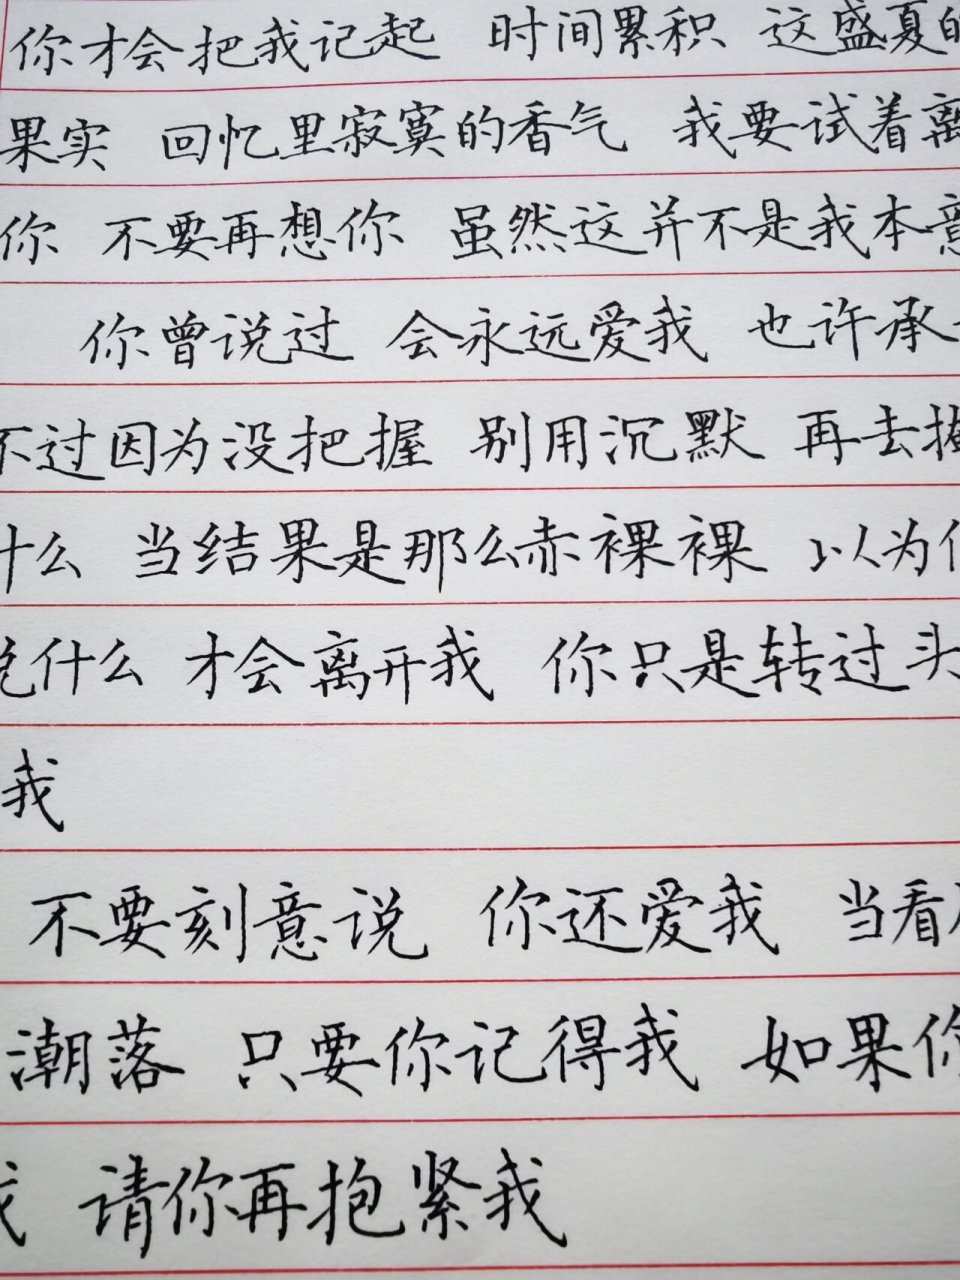 你才会把我记起 时间累积 这盛夏的
果实 回忆里寂寞的香气 我要试着离
你 不要再想你 虽然这并不是我本意
你曾说过 会永远爱我 也许承
不过因为没把握 别用沉默 再去掩
什么 当结果是那么赤裸裸 以为你
说什么 才会离开我 你只是转过头
我
不要刻意说 你还爱我 当看
潮落 只要你记得我 如果你
我 请你再抱紧我